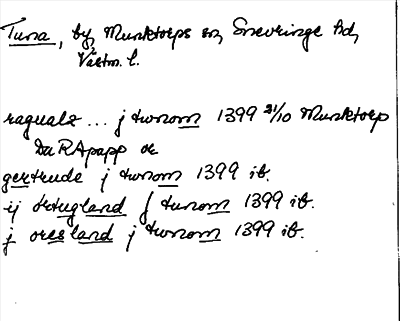 Tuna, by, Munktorps sn, Snevringe hd,
Västm. l.
ragualz ... j twnom 1399 21/10 Munktorp
DaRApapp or
gertrude j twnom 1399 ib.
ij örtugland j tunom 1399 ib.
j öresland j twnom 1399 ib.